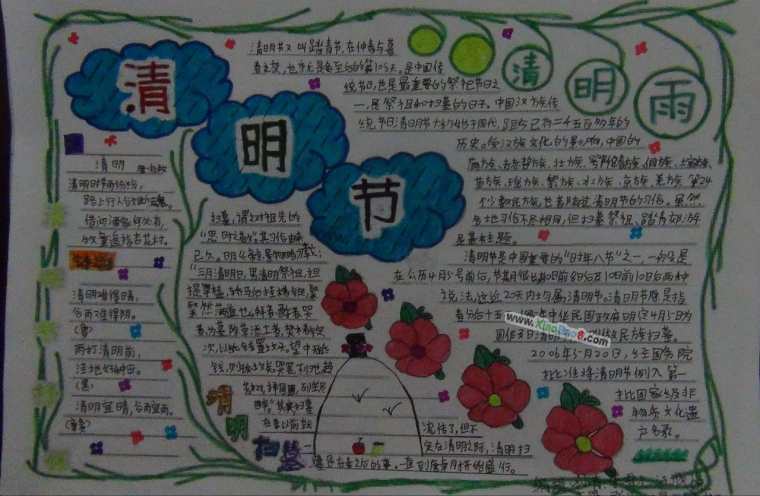 清
明
节
清明雨
清明节又叫踏青节,在仲春与暮
春之交,也就是冬至后的第105天。是中国传
统节日,也是最重要的祭祀节日之
一,是祭祖和扫墓的日子。中国汉族传
统的清明节大约始于周代,距今已有二千五百多年的
历史。受汉族文化的影响,中国的
满族、赫哲族、壮族、鄂伦春族、侗族、土家族、
苗族、瑶族、黎族、水族、京族、羌族等24
个少数民族,也都有过清明节的习俗。虽然
各地习俗不尽相同,但扫墓祭祖、踏青郊游
是基本主题。
清明节是中国重要的“时年八节”之一,一般是
在公历4月5号前后,节期很长,有10日前8日后及10日前10日后两种
说法,这近20天内均属清明节。清明节原是指
春分后十五
中华民国
明节
4月5日
2006年5月20日,经国务院
批准将清明节列入第一
批国家级非
物质文化遗
产名录。
清明
清明时节雨纷纷,
路上行人欲断魂。
借问酒家何处有,
牧童遥指杏花村。
清明难得晴,
谷雨难得阴。
雨打清明前,
洼地好种田。
清明宜晴,谷雨宜雨。
扫墓,谓之对祖先的
“思时之敬”其习俗由来
已久。明
“三月清明日,男女扫墓,担
提尊榼,轿马后挂楮锭,粲
粲然满道也。拜者、酹者、哭
者、为墓除草添土者,焚楮锭
次,以纸钱置坟头。望中无纸
钱,则孤坟矣。哭罢,不归也,趋
芳树,择园圃,列坐尽
醉”其实扫墓
在秦以前就
有了,但不一
定在清明之际,清明扫
墓则是秦以后的事,直到唐朝才开始盛行。
清明
扫墓
www.XingDaa.com